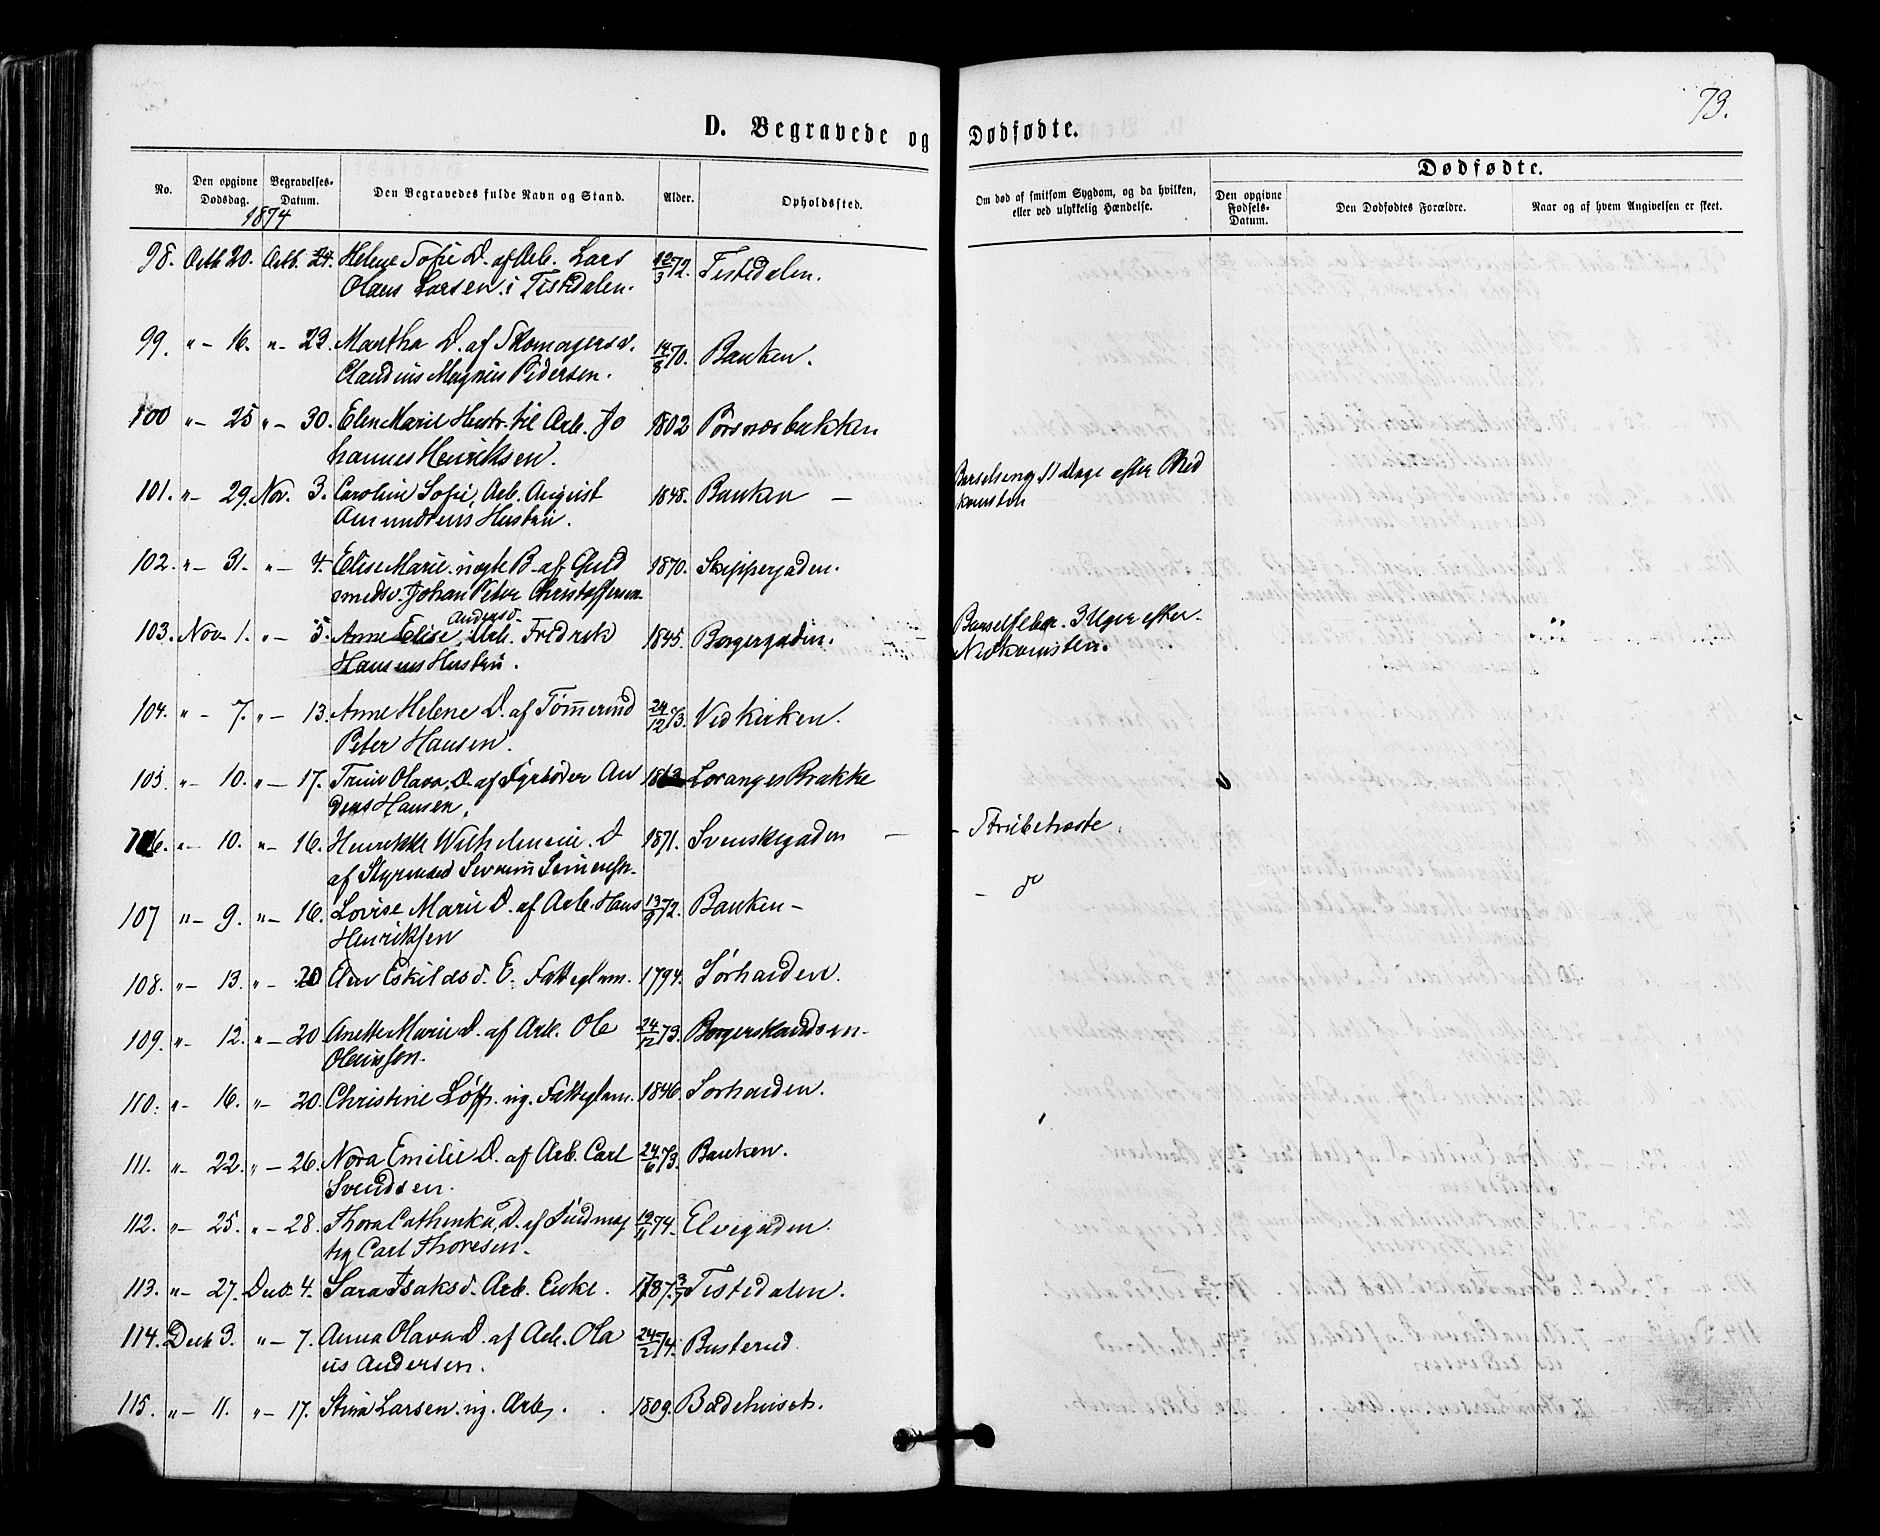 73.
D. Begravede og Dødfødte.
No.
Den opgivne Dødsdag.
Begravelses-Datum.
Den Begravedes fulde Navn og Stand.
Alder.
Opholdssted.
Om død af smitsom Sygdom, og da hvilken, eller ved ulykkelig Hændelse.
Dødfødte.
Den opgivne Fødsels-Datum.
Den Dødfødtes Forældre.
Naar og af hvem Angivelsen er skeet.
1874
98. Octb 20. Octb. 24. Helene Sofie D. af Arb. Lars 12/3 72. Tistedalen.
Olaus Larsen i Tistedalen.
99. " – 16. " – 23. Martha D. af Skomagersv. 14/8 70. Banken.
Claudius Magnus Pedersen.
100 " – 25 " – 30. Elen Marie Hustr. til Arb. Jo 1802 Porsnæsbakken
hannes Henriksen.
101. " – 29. Nov. 3. Caroline Sofie, Arb. August 1848. Banken – Barselseng 11 Dage efter Ned
Amundsens Hustru. komsten
102. " – 31. " – 4. Elise Marie. uægte B. af Guld 1870. Skippergaden.
smedsv. Johan Peter Christoffersen
Andersd.
103. Nov. 1. " – 5. Anne Elise, Arb. Fredrik 1845. Borgergaden. Barselfeber. 3 Uger efter
Hansens Hustru. Nedkomsten.
104. " – 7. " – 13. Anne Helene D. af Tømmermd 24/12 73. Ved Kirken.
Peter Hansen.
105. " – 10. " – 17. Trine Olava, D. af Fyrbøder An 1863 Loranges Brakke
ders Hansen.
106. " – 10. " – 16. Henrikke Wilhelmine. D 1871. Svenskegaden – – Strubehoste
af Styrmand Severin Simensen.
107 " – 9. " – 16. Lovise Marie D. af Arb. Hans 13/9 72. Banken – – do
Henriksen
108. " – 13. " – 20 Elen Eskildsd. E. Fatteglem. 1794. Sørhauden.
109. " – 12. " – 20 Anette Marie D. af Arb. Ole 24/12 73. Borgerskandsen.
Olaussen.
110. " – 16. " – 20. Christine Løff. ug. Fatteglem. 1846. Sørhauden.
111. " – 22. " – 26. Nora Emilie D. af Arb. Carl 24/6 73. Banken.
Svendsen.
112. " – 25. " – 28. Thora Cathinka, D. af Buntmag 19/11 74. Elvegaden.
Carl Thoresen.
113. " – 27. Decb. 4. Sara Isaksd. Arb. Enke. 1787. 3/7 Tistedalen.
114. Decb 3. " – 7. Anna Olava D. af Arb. Ola 24/2 74. Busterud
us Andersen.
115. " – 11. " – 17. Stina Larsen. ug. Arb. 1809. Badehuset.